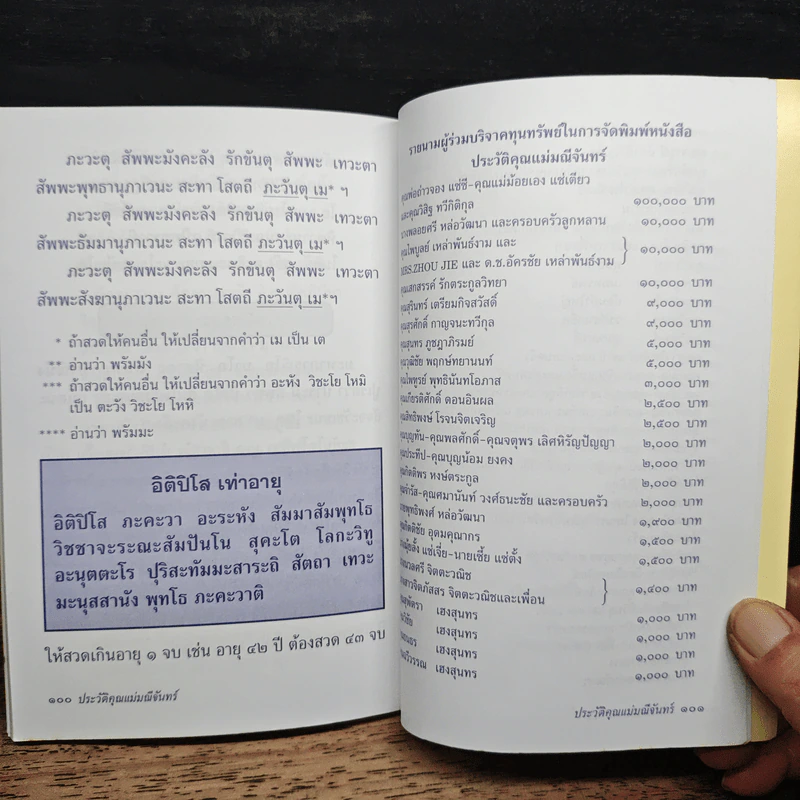 ภะวะตุ สัพพะมังคะลัง รักขันตุ สัพพะ เทวะตา
สัพพะพุทธานุภาเวนะ สะทา โสตถี ภะวันตุ เม* ฯ
ภะวะตุ สัพพะมังคะลัง รักขันตุ สัพพะ เทวะตา
สัพพะธัมมานุภาเวนะ สะทา โสตถี ภะวันตุ เม* ฯ
ภะวะตุ สัพพะมังคะลัง รักขันตุ สัพพะ เทวะตา
สัพพะสังฆานุภาเวนะ สะทา โสตถี ภะวันตุ เม*ฯ
* ถ้าสวดให้คนอื่น ให้เปลี่ยนจากคำว่า เม เป็น เต
** อ่านว่า พรัมมัง
*** ถ้าสวดให้คนอื่น ให้เปลี่ยนจากคำว่า อะหัง วิชะโย โหมิ
เป็น ตะวัง วิชะโย โหหิ
**** อ่านว่า พรัมมะ
อิติปิโส เท่าอายุ
อิติปิโส ภะคะวา อะระหัง สัมมาสัมพุทโธ
วิชชาจะระณะสัมปันโน สุคะโต โลกะวิทู
อะนุตตะโร ปุริสะทัมมะสาระถิ สัตถา เทวะ
มะนุสสานัง พุทโธ ภะคะวาติ
ให้สวดเกินอายุ ๑ จบ เช่น อายุ ๔๒ ปี ต้องสวด ๔๓ จบ
๑๐๐ ประวัติคุณแม่มณีจันทร์
รายนามผู้ร่วมบริจาคทุนทรัพย์ในการจัดพิมพ์หนังสือ
ประวัติคุณแม่มณีจันทร์
คุณพ่อถ่าวจอง แซ่ซี-คุณแม่ม้อยเอง แซ่เตียว
และคุณวิสิฐ ทวีกิติกุล ๑๐๐,๐๐๐ บาท
นางพลอยศรี หล่อวัฒนา และครอบครัวลูกหลาน ๑๐,๐๐๐ บาท
คุณไพบูลย์ เหล่าพันธ์งาม และ
MRS.ZHOU JIE และ ด.ช.อัครชัย เหล่าพันธ์งาม } ๑๐,๐๐๐ บาท
คุณเสกสรรค์ รักตระกูลวิทยา ๑๐,๐๐๐ บาท
คุณสุรินทร์ เตรียมกิจสวัสดิ์ ๙,๐๐๐ บาท
คุณสุรศักดิ์ กาญจนะทวีกุล ๙,๐๐๐ บาท
คุณสุนทร ภูชฎาภิรมย์ ๕,๐๐๐ บาท
คุณวุฒิชัย พฤกษ์ทยานนท์ ๕,๐๐๐ บาท
คุณไพฑูรย์ พุทธินันทโอภาส ๓,๐๐๐ บาท
คุณเกียรติศักดิ์ ดอนอินผล ๒,๕๐๐ บาท
คุณสิทธิพงษ์ โรจนจิตเจริญ ๒,๕๐๐ บาท
คุณบุญทัน-คุณพลศักดิ์-คุณจตุพร เลิศหิรัญปัญญา ๒,๐๐๐ บาท
คุณประทีป-คุณบุญน้อม ยงคง ๒,๐๐๐ บาท
คุณกิตติพร หงษ์ตระกูล ๒,๐๐๐ บาท
คุณจำรัส-คุณศมานันท์ วงศ์ธนะชัย และครอบครัว ๒,๐๐๐ บาท
พุทธิพงศ์ หล่อวัฒนา ๑,๙๐๐ บาท
คุณกิตติชัย อุดมคุณากร ๑,๕๐๐ บาท
แซ่เจี่ย-นายเซี้ย แซ่ตั้ง ๑,๕๐๐ บาท
จิตตะวณิช
จิตภัสสร จิตตะวณิชและเพื่อน } ๑,๔๐๐ บาท
เฮงสุนทร ๑,๐๐๐ บาท
เฮงสุนทร ๑,๐๐๐ บาท
เฮงสุนทร ๑,๐๐๐ บาท
เฮงสุนทร ๑,๐๐๐ บาท
ประวัติคุณแม่มณีจันทร์ ๑๐๑